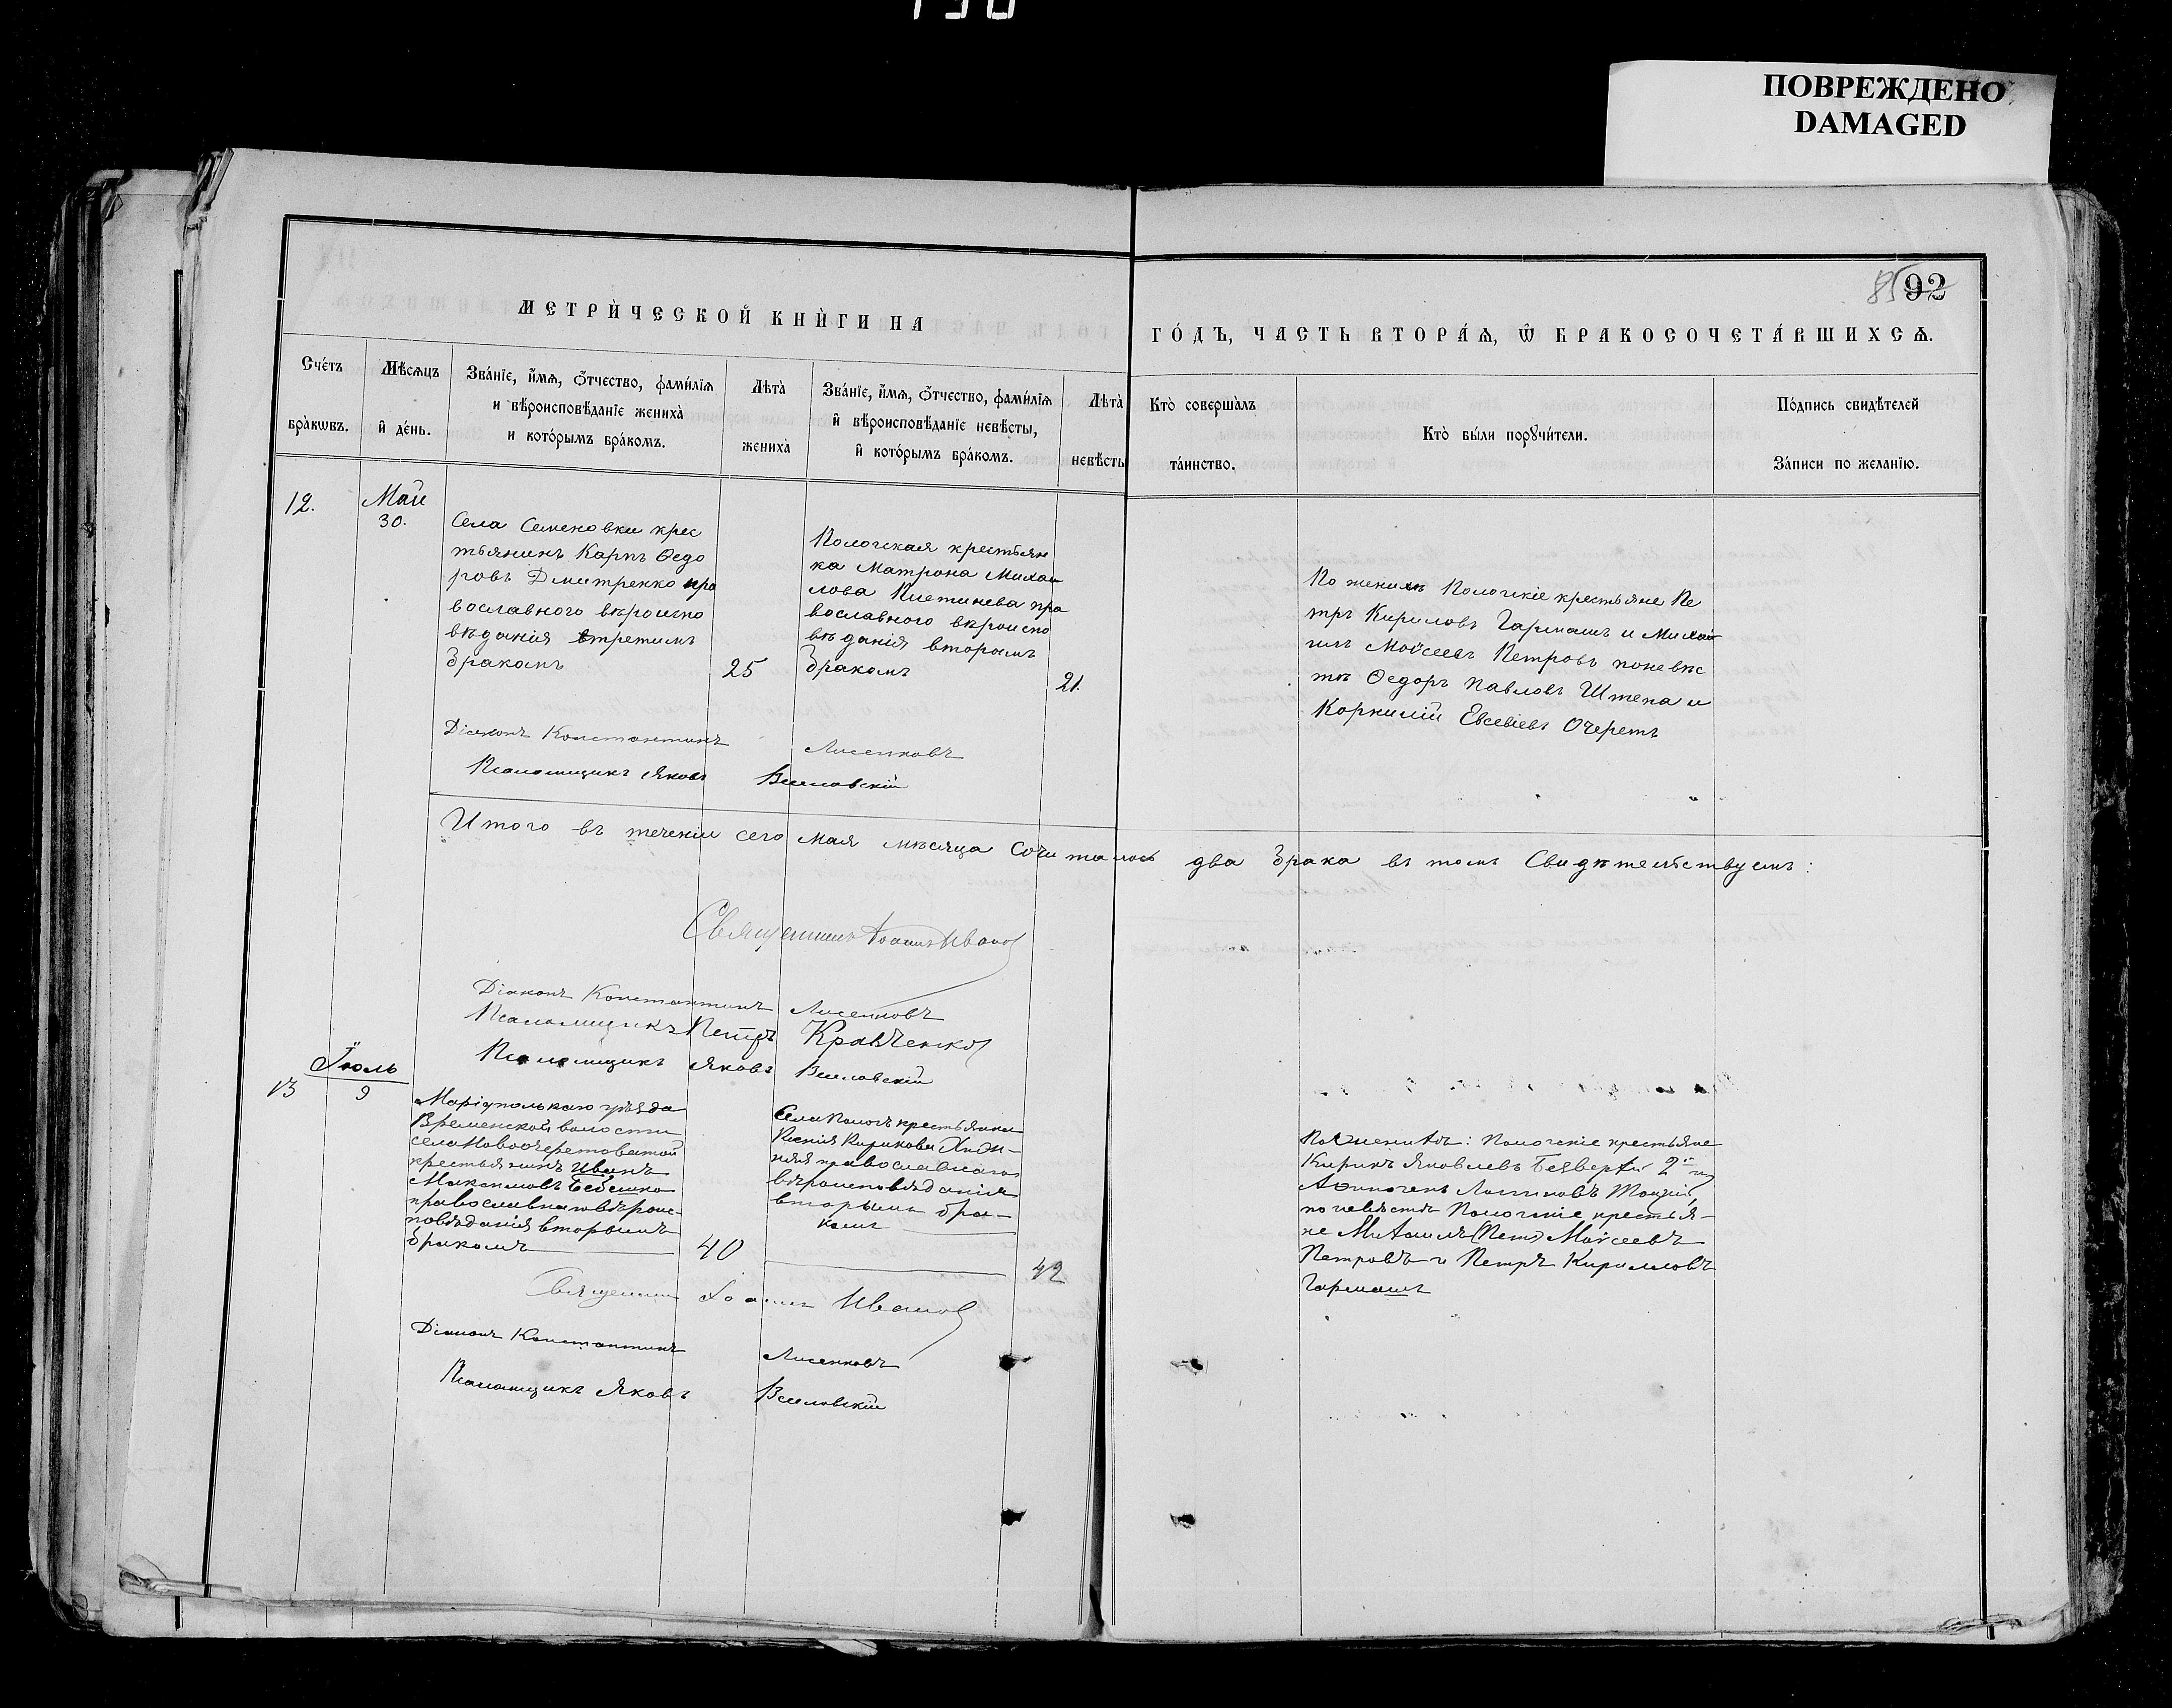 ПОВРЕЖДЕНО
DAMAGED
85 92
МЕТРИ́ЧЕСКОЙ КНИ́ГИ НА ГО́ДЪ, ЧАСТЬ ВТОРА́Ѧ, Ѽ БРАКОСОЧЕТА́ВШИХСѦ.
Сче́тъ бра̀кѡвъ.
Мѣ́сѧцъ и҆ де́нь.
Зва́нїе, и҆́мѧ, ѻ҆́тчество, фами́лїѧ
и вѣроисповѣ́данїе жениха̀
и кото́рымъ бра́комъ.
Лѣта̀ жениха̀
Зва́нїе, и҆́мѧ, ѻ҆́тчество, фами́лїѧ
и҆ вѣроисповѣ́данїе невѣ́сты,
и҆ кото́рымъ бра́комъ.
Лѣта̀ невѣ́сты
Кто̀ соверша̀лъ та́инство.
Кто̀ бы́ли порꙋчи́тели.
По́дпись свидѣ́телей
За́писи по жела́нїю.
12.
Май
30.
Села Семеновки крес
тьянинъ Карпъ Ѳедо
ровъ Дмитренко пра
вославного вѣроиспо
вѣданія третимъ
бракомъ
25
Пологская крестьян
ка Матрона Михаи
лова Плетинева пра
вославного вѣроиспо
вѣданія вторымъ
бракомъ
21.
По женихѣ Пологскіе крестьяне Пе
тръ Кириловъ Гармашъ и Михаи
илъ Мойсеевъ Петровъ поневѣс
тѣ Ѳедоръ Павловъ Штепа и
Корнилій Евсевіевъ Очеретъ
Діаконъ Константинъ Лисенковъ
Псаломщикъ Яковъ
Итого въ теченіи сего мая мѣсяца Сочиталось два брака въ томъ Свидѣтельствуемъ:
Священникъ Іоаннъ Ивановъ
Діаконъ Константинъ Лисенковъ
Псаломщикъ Петръ Кравченко
Псаломщикъ Яковъ
13
Іюль
9
Маріупольскаго уѣзда
Временской волости
села Новоочеретоватой
крестьянинъ Иванъ
Максимовъ Бебешко
православнаго вѣроис-
повѣданія вторымъ
бракомъ
40
Села Пологъ крестьянка
Ксенія Кирикова
православнаго
вѣроисповѣданія
вторымъ бра-
комъ
42
По женихѣ: Пологскіе крестьяне
Кирикъ Яковлевъ Безверхій 2й и
по невѣстѣ Пологскіе крестья-
не Михаилъ (Петр) Мойсеевъ
Петровъ и Петръ Кирилловъ
Гармашъ
Священникъ Іоаннъ Ивановъ
Діаконъ Константинъ Лисенковъ
Псаломщикъ Яковъ